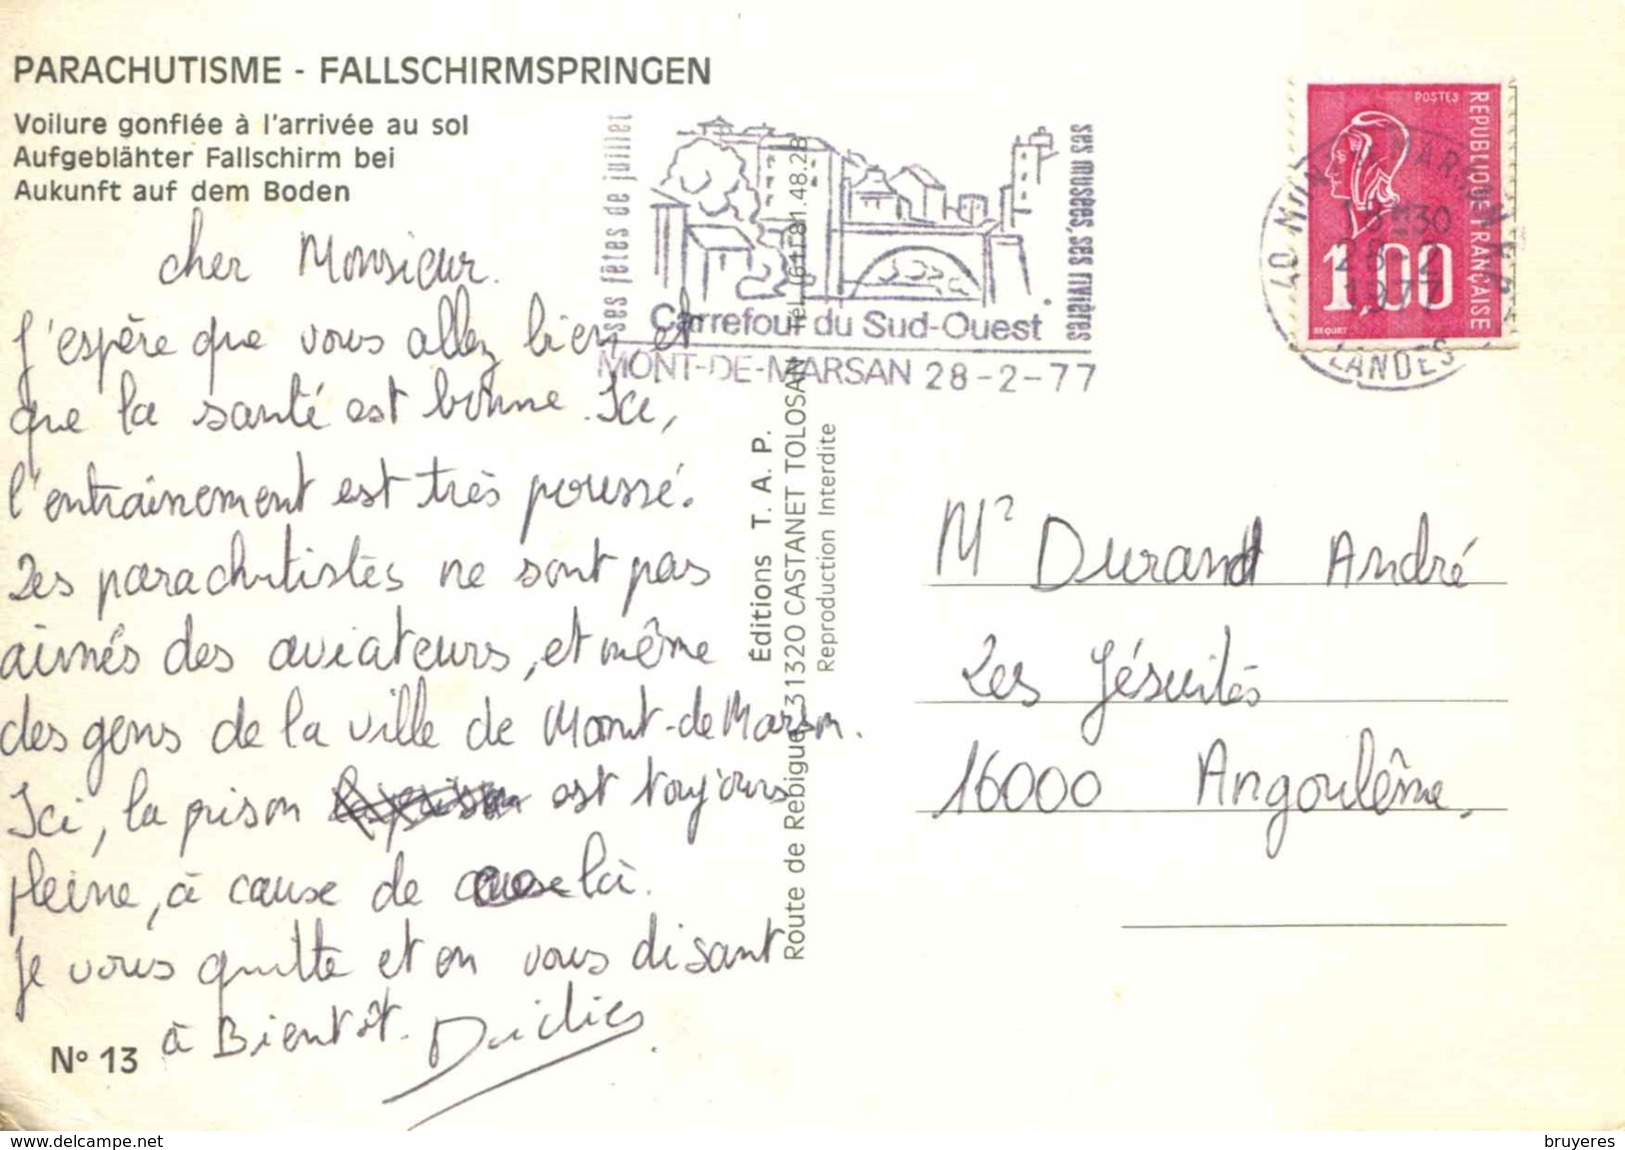 PARACHUTISME - FALLSCHIRMSPRINGEN
Voilure gonflée à l'arrivée au sol
Aufgeblähter Fallschirm bei
Aukunft auf dem Boden
cher Monsieur.
J'espère que vous allez bien et
que la santé est bonne. Ici,
l'entrainement est très poussé.
Les parachutistes ne sont pas
aimés des aviateurs, et même
des gens de la ville de Mont-de Marsan.
Ici, la prison est toujours
pleine, à cause de là.
Je vous quitte et en vous disant
à Bientôt. Didier
N° 13
ses fêtes de juillet
ses musées, ses rivières
Carrefour du Sud-Ouest
MONT-DE-MARSAN 28-2-77
Éditions T. A. P.
Route de Rebigue 31320 CASTANET TOLOSAN Tél. (61) 81.48.28
Reproduction Interdite
POSTES
REPUBLIQUE FRANÇAISE
1,00
BEQUET
40 MARSAN
18H30
28-2
1977
LANDES
Mr Durand André
Les Jésuites
16000 Angoulême,
www.delcampe.net
bruyeres